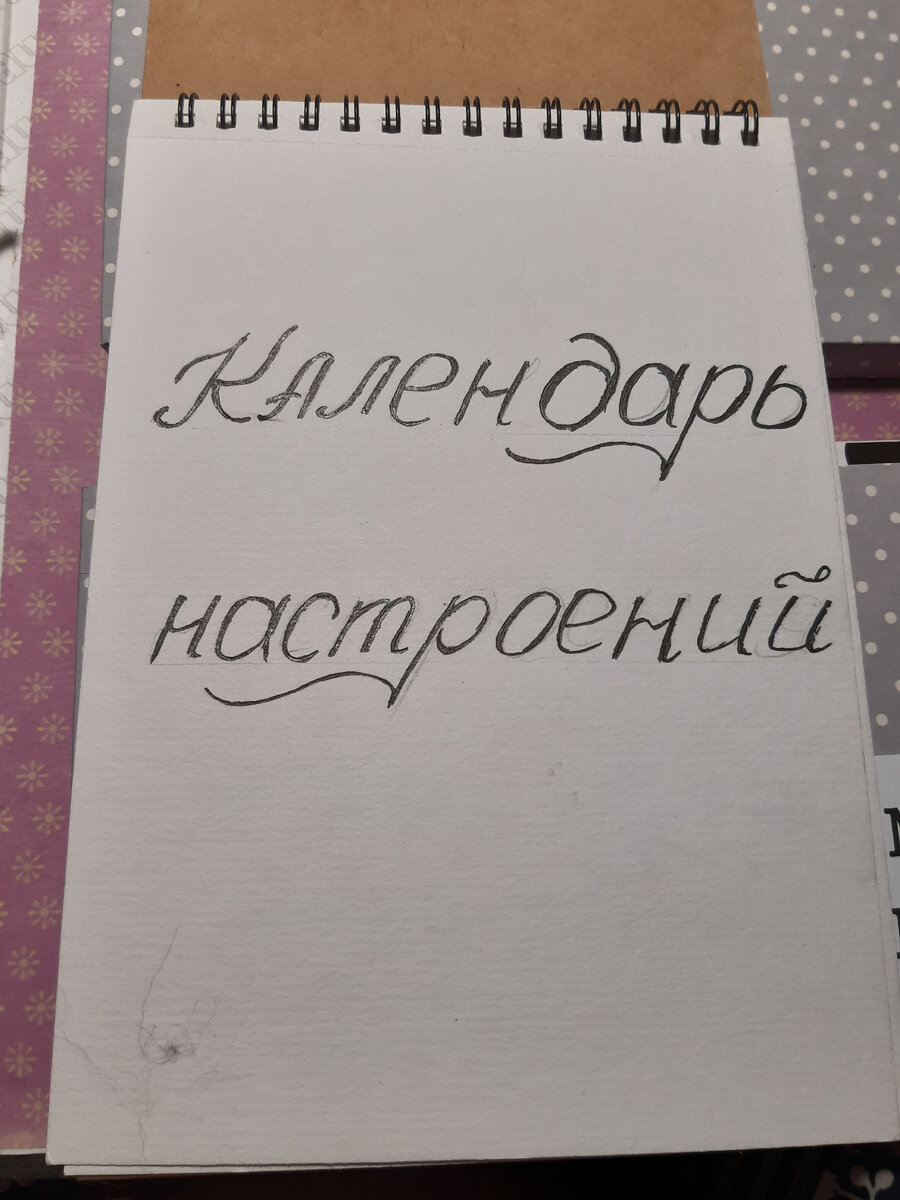 Календарь
настроений